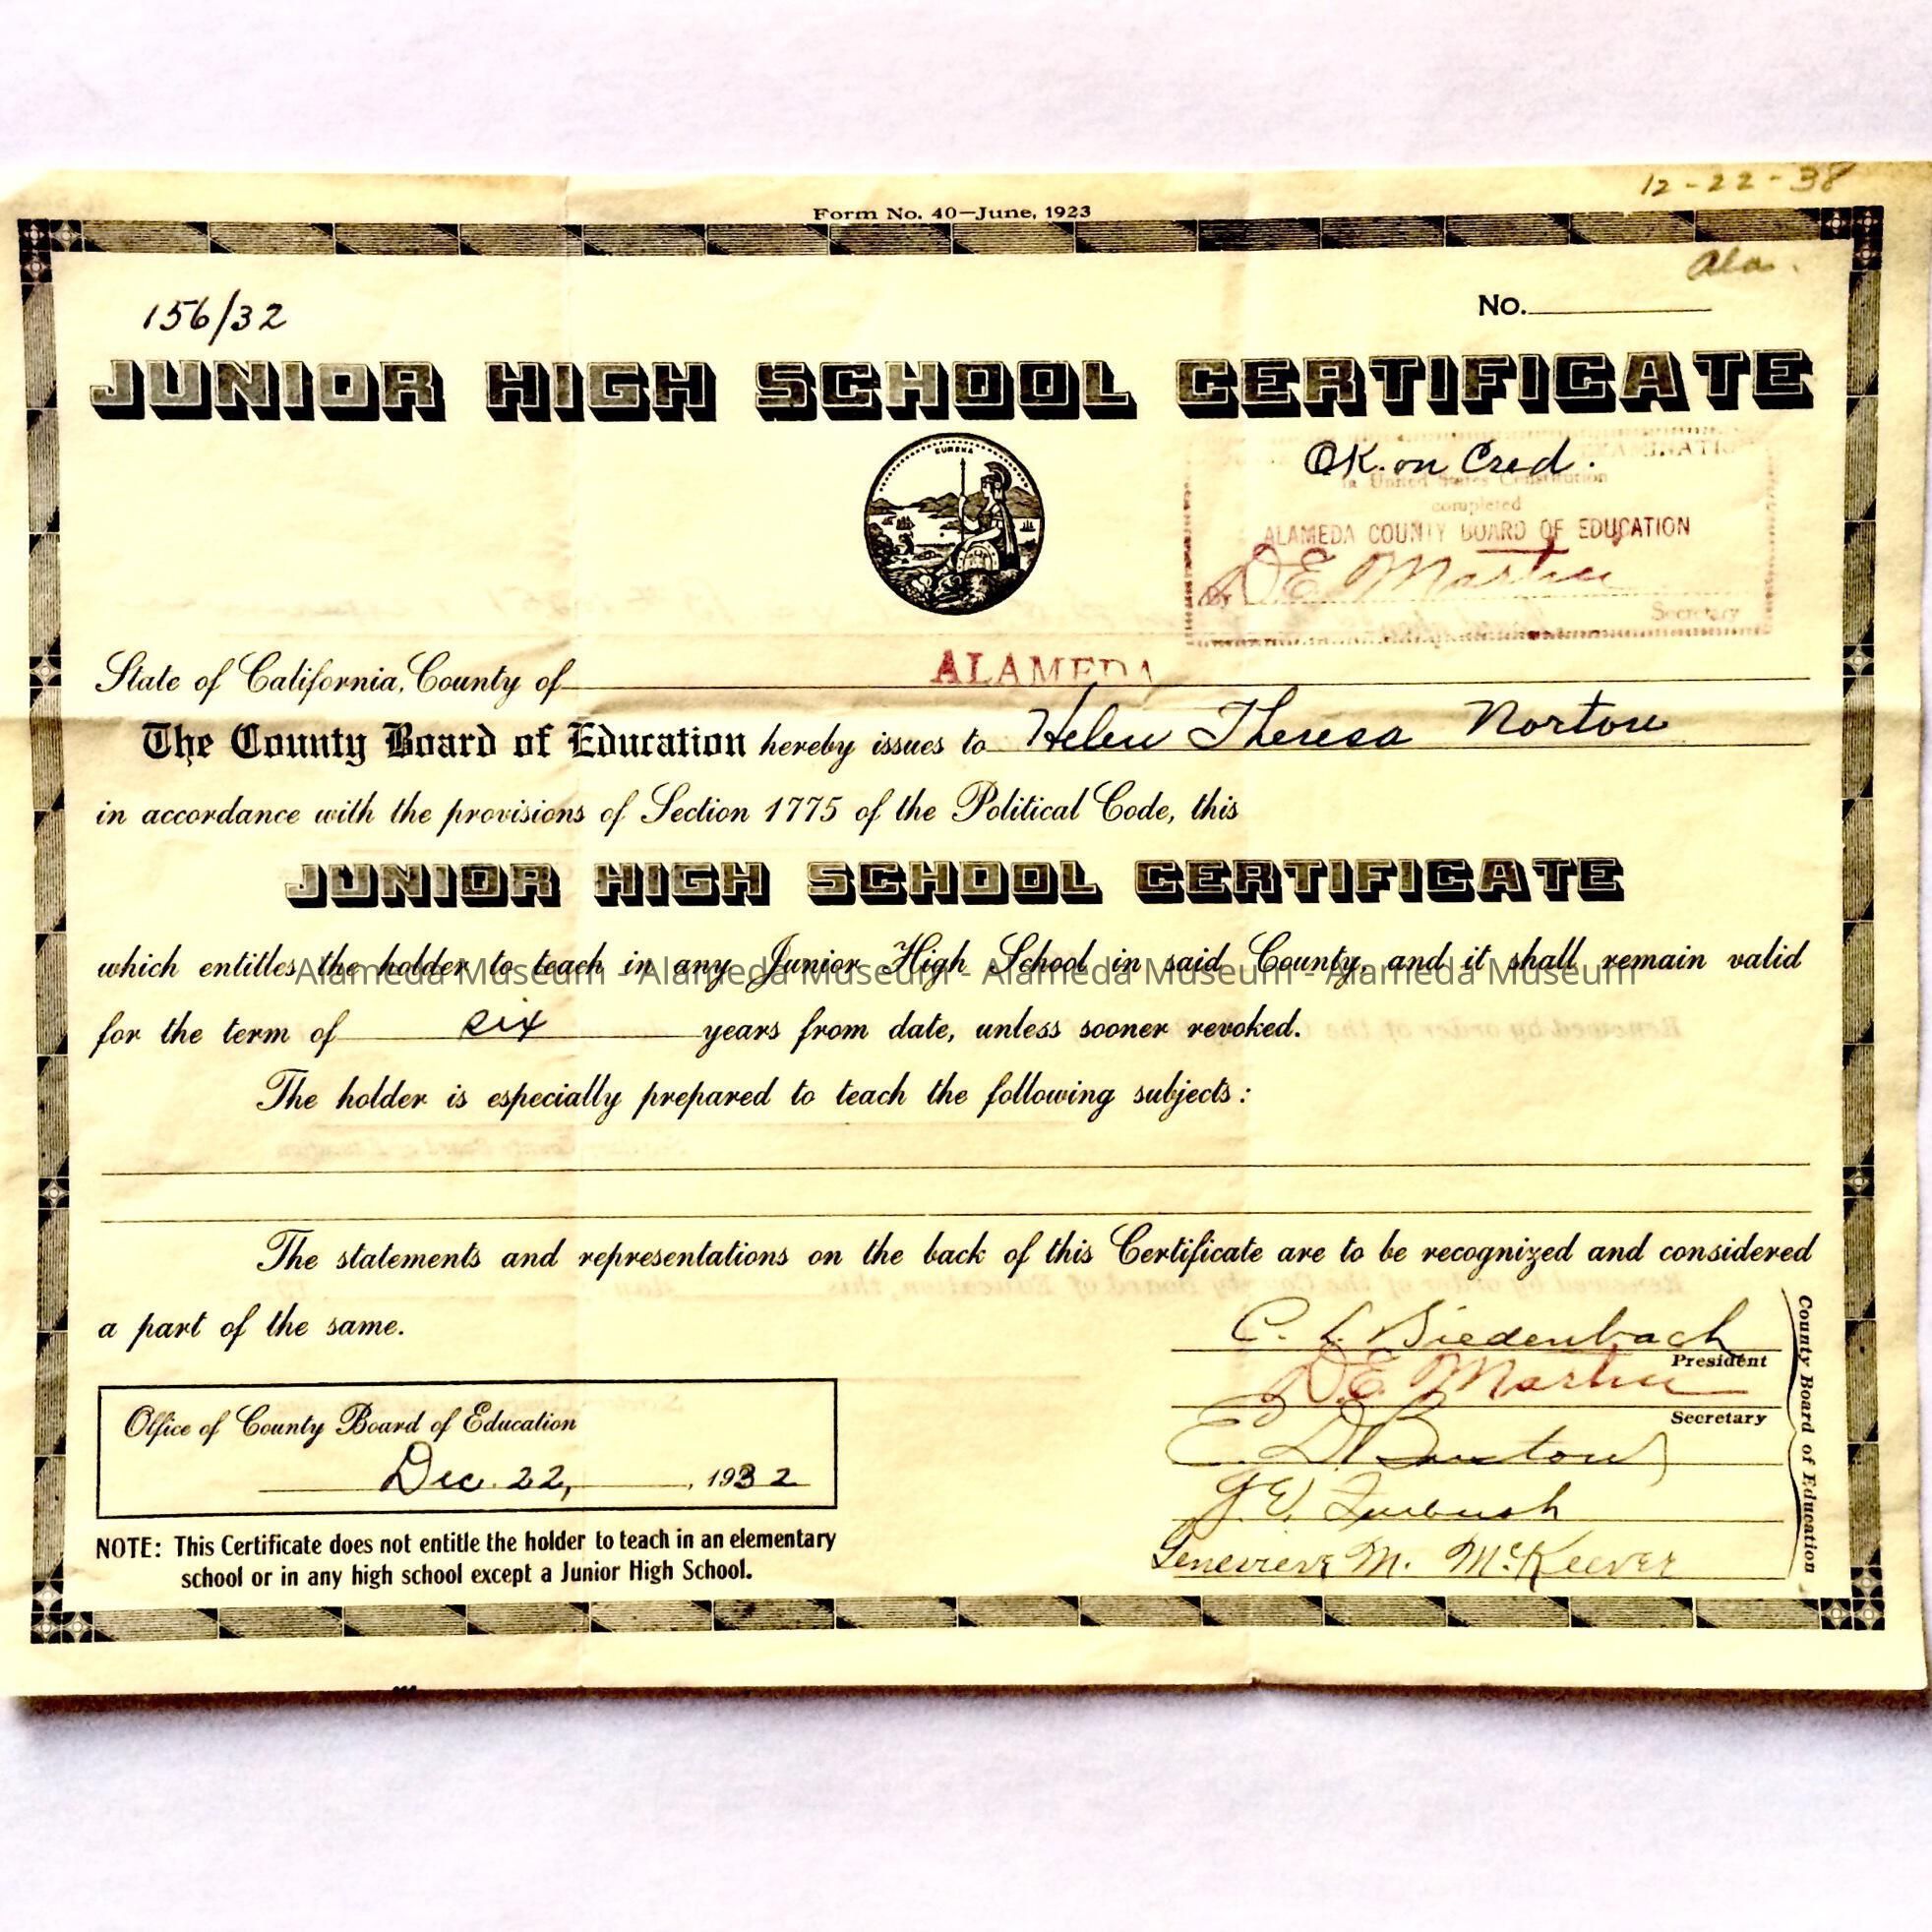 12-22-38
Form No. 40—June, 1923
Ala.
156/32
No.
JUNIOR HIGH SCHOOL CERTIFICATE
EUREKA
OK. on Cred.
EXAMINATI
in United States Constitution
completed
ALAMEDA COUNTY BOARD OF EDUCATION
By D E Martin
Secretary
State of California, County of ALAMEDA
The County Board of Education hereby issues to Helen Theresa Norton
in accordance with the provisions of Section 1775 of the Political Code, this
JUNIOR HIGH SCHOOL CERTIFICATE
which entitles the holder to teach in any Junior High School in said County, and it shall remain valid
Alameda Museum - Alameda Museum - Alameda Museum - Alameda Museum
for the term of six years from date, unless sooner revoked.
The holder is especially prepared to teach the following subjects:
The statements and representations on the back of this Certificate are to be recognized and considered
a part of the same.
C. L. Biedenbach
President
D. E. Martin
Secretary
E. D.
J. E. Furbush
Genevieve M. McKeever
County Board of Education
Office of County Board of Education
Dec. 22, , 1932
NOTE: This Certificate does not entitle the holder to teach in an elementary
school or in any high school except a Junior High School.